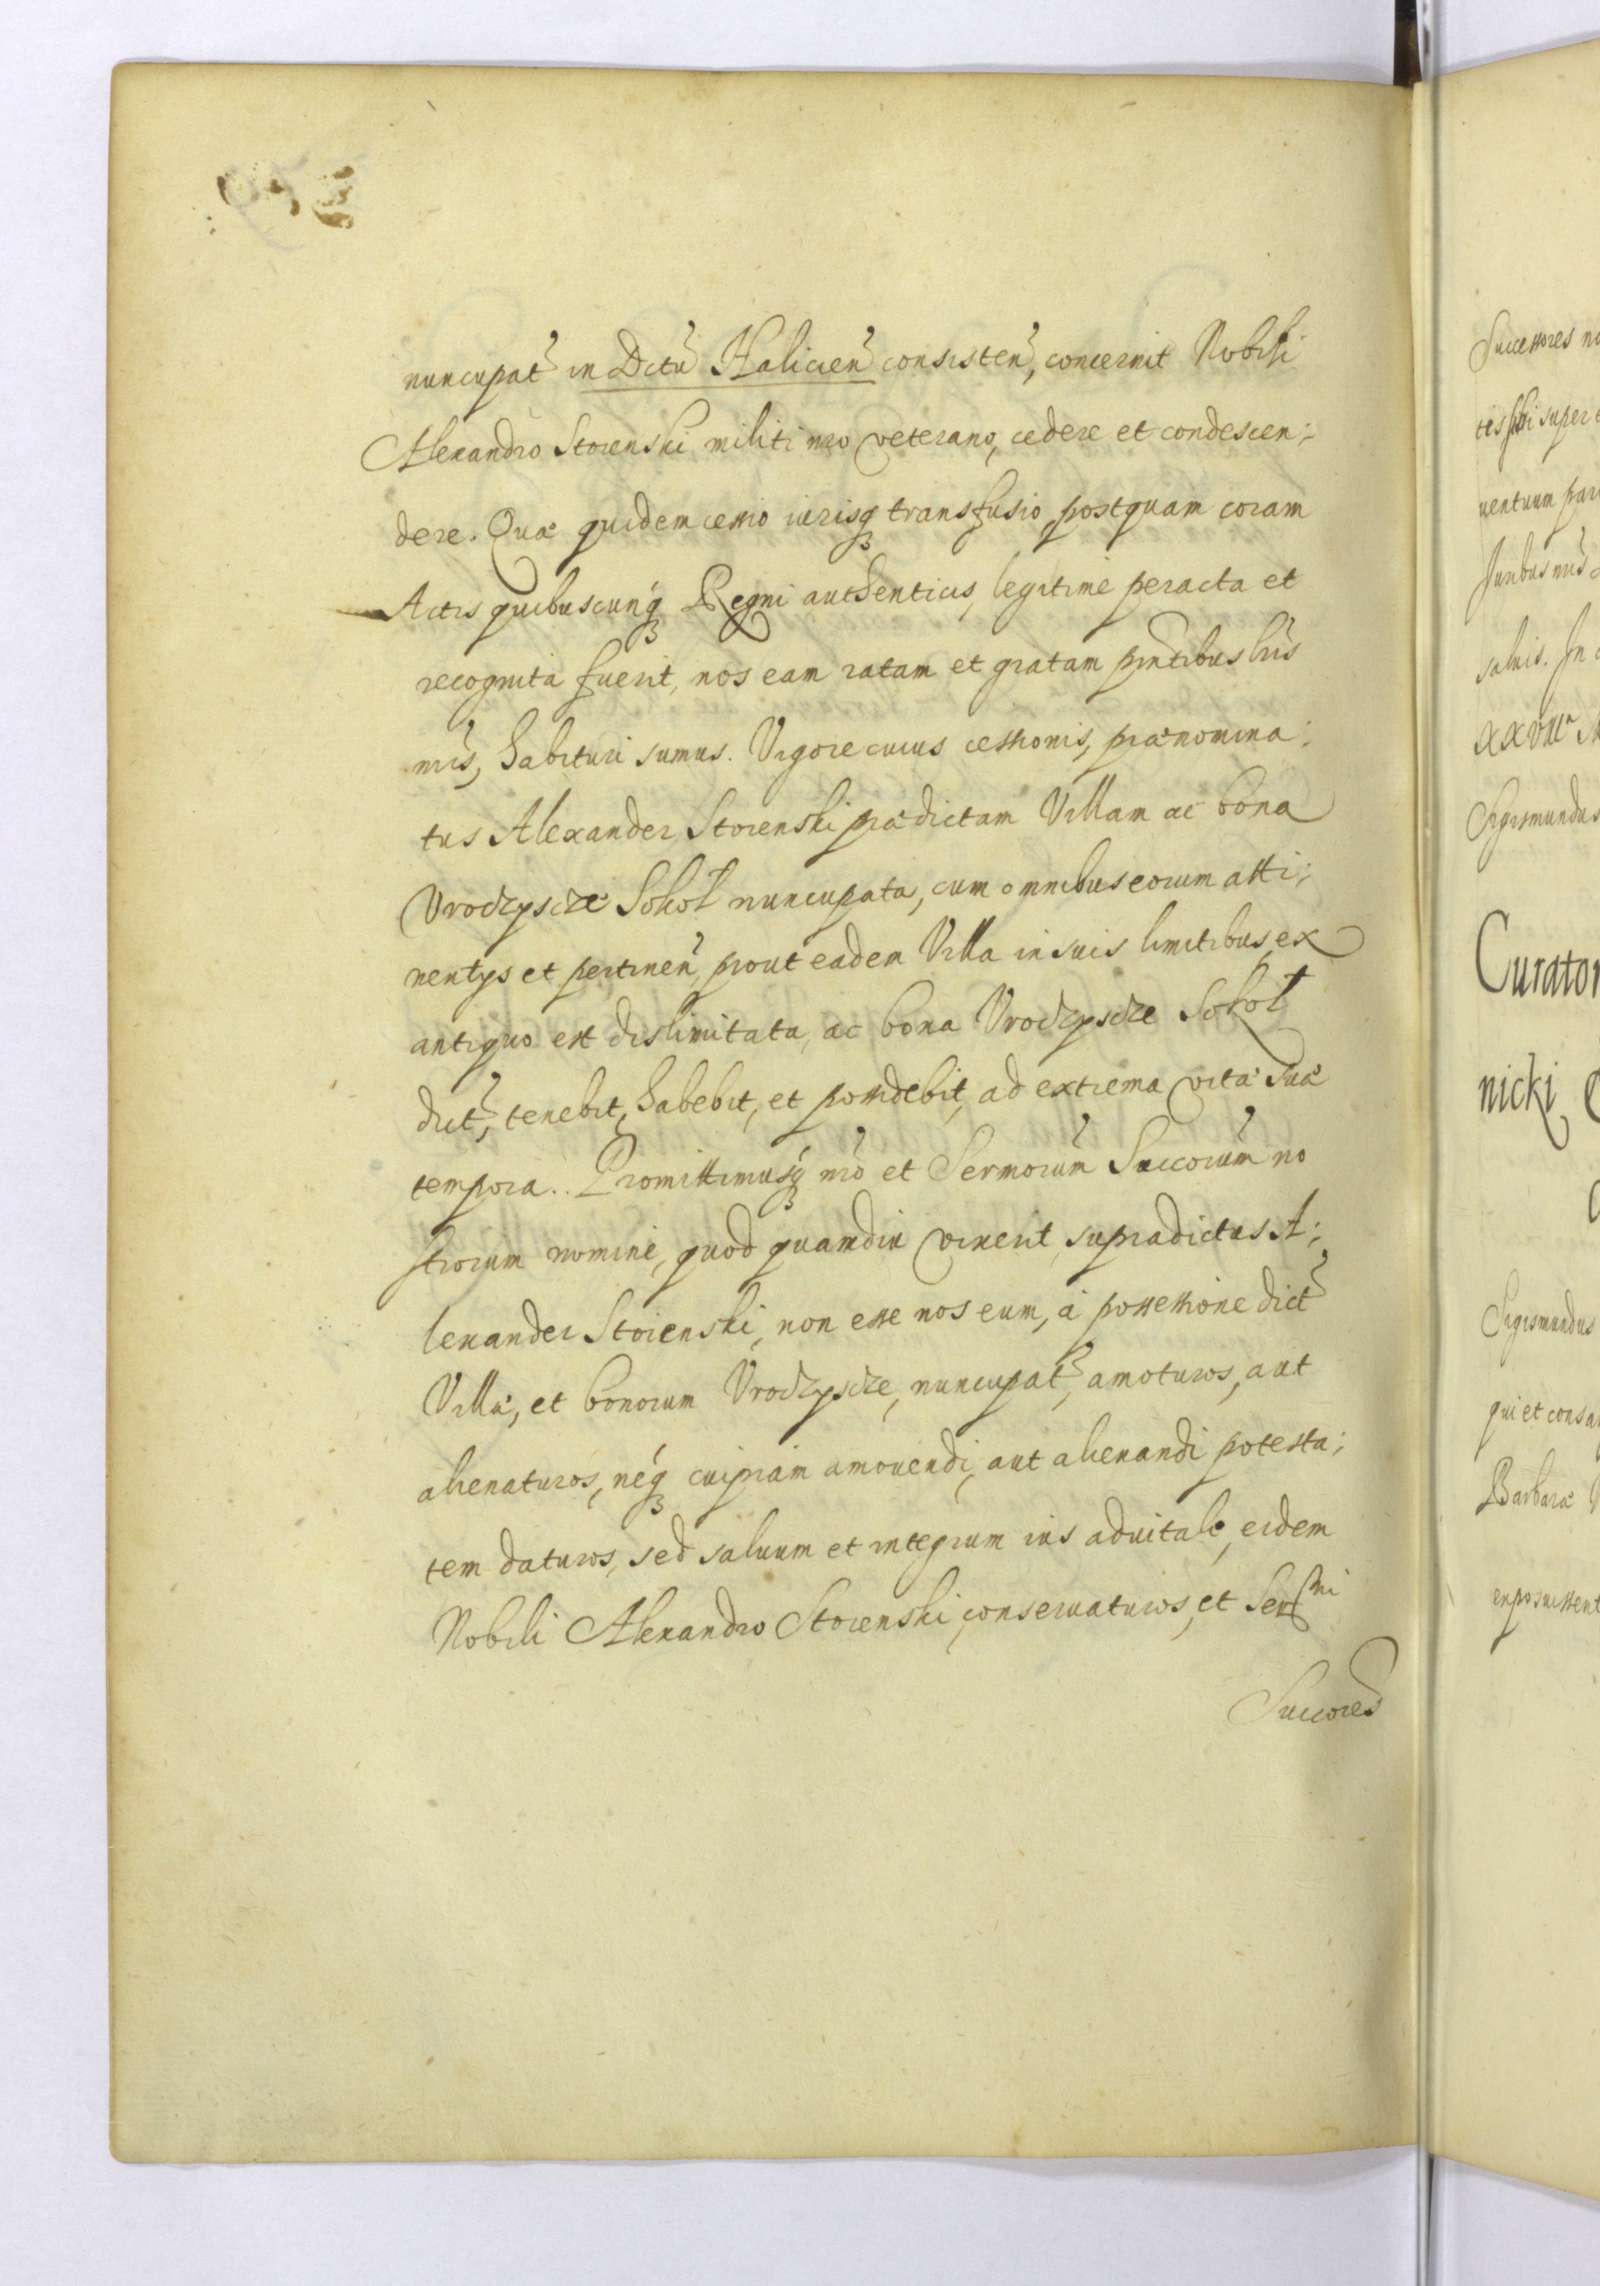 nuncupat in Dctu Halicien consisten, concernit Nobili
Alexandro Storenski militi nro veterano, cedere et condescen:
dere. Quæ quidem cessio iurisq transfusio, postquam coram
Actis quibuscunq Regni authenticis, legitimè peracta et
recognita fuerit, nos eam ratam et gratam pntibus lris
nris, habituri sumus. Vigore cuius cessionis, prænomina:
tus Alexander Storenski prædictam Villam ac bona
Vroczyscze Sokoł nuncupata, cum omnibus eorum atti:
nentys et pertinen, prout eadem Villa in suis limitibus, ex
antiquo est dislimitata, ac bona Vroczyscze Sokoł
dict, tenebit, habebit, et possidebit, ad extrema vitæ suæ
tempora. Promittimusq nro et Sermorum Succorum no
strorum nomine, quod quamdiu vixerit supradictus A:
lexander Storenski, non esse nos eum, à possessione dict
Villæ, et bonorum Vroczyscze, nuncupat, amoturos, aut
alienaturos, neq cuipiam amouendi, aut alienandi potesta:
tem daturos, sed saluum et integrum ius aduitale, eidem
Nobili Alexandro Storenski, conseruaturos, et Sermi
Succores
Successores
super
uentuum
Juribus nris
saluis. In
XXVIIa
Sigismundus
Curator
nicki
Sigismundus
qui et
Barbaræ